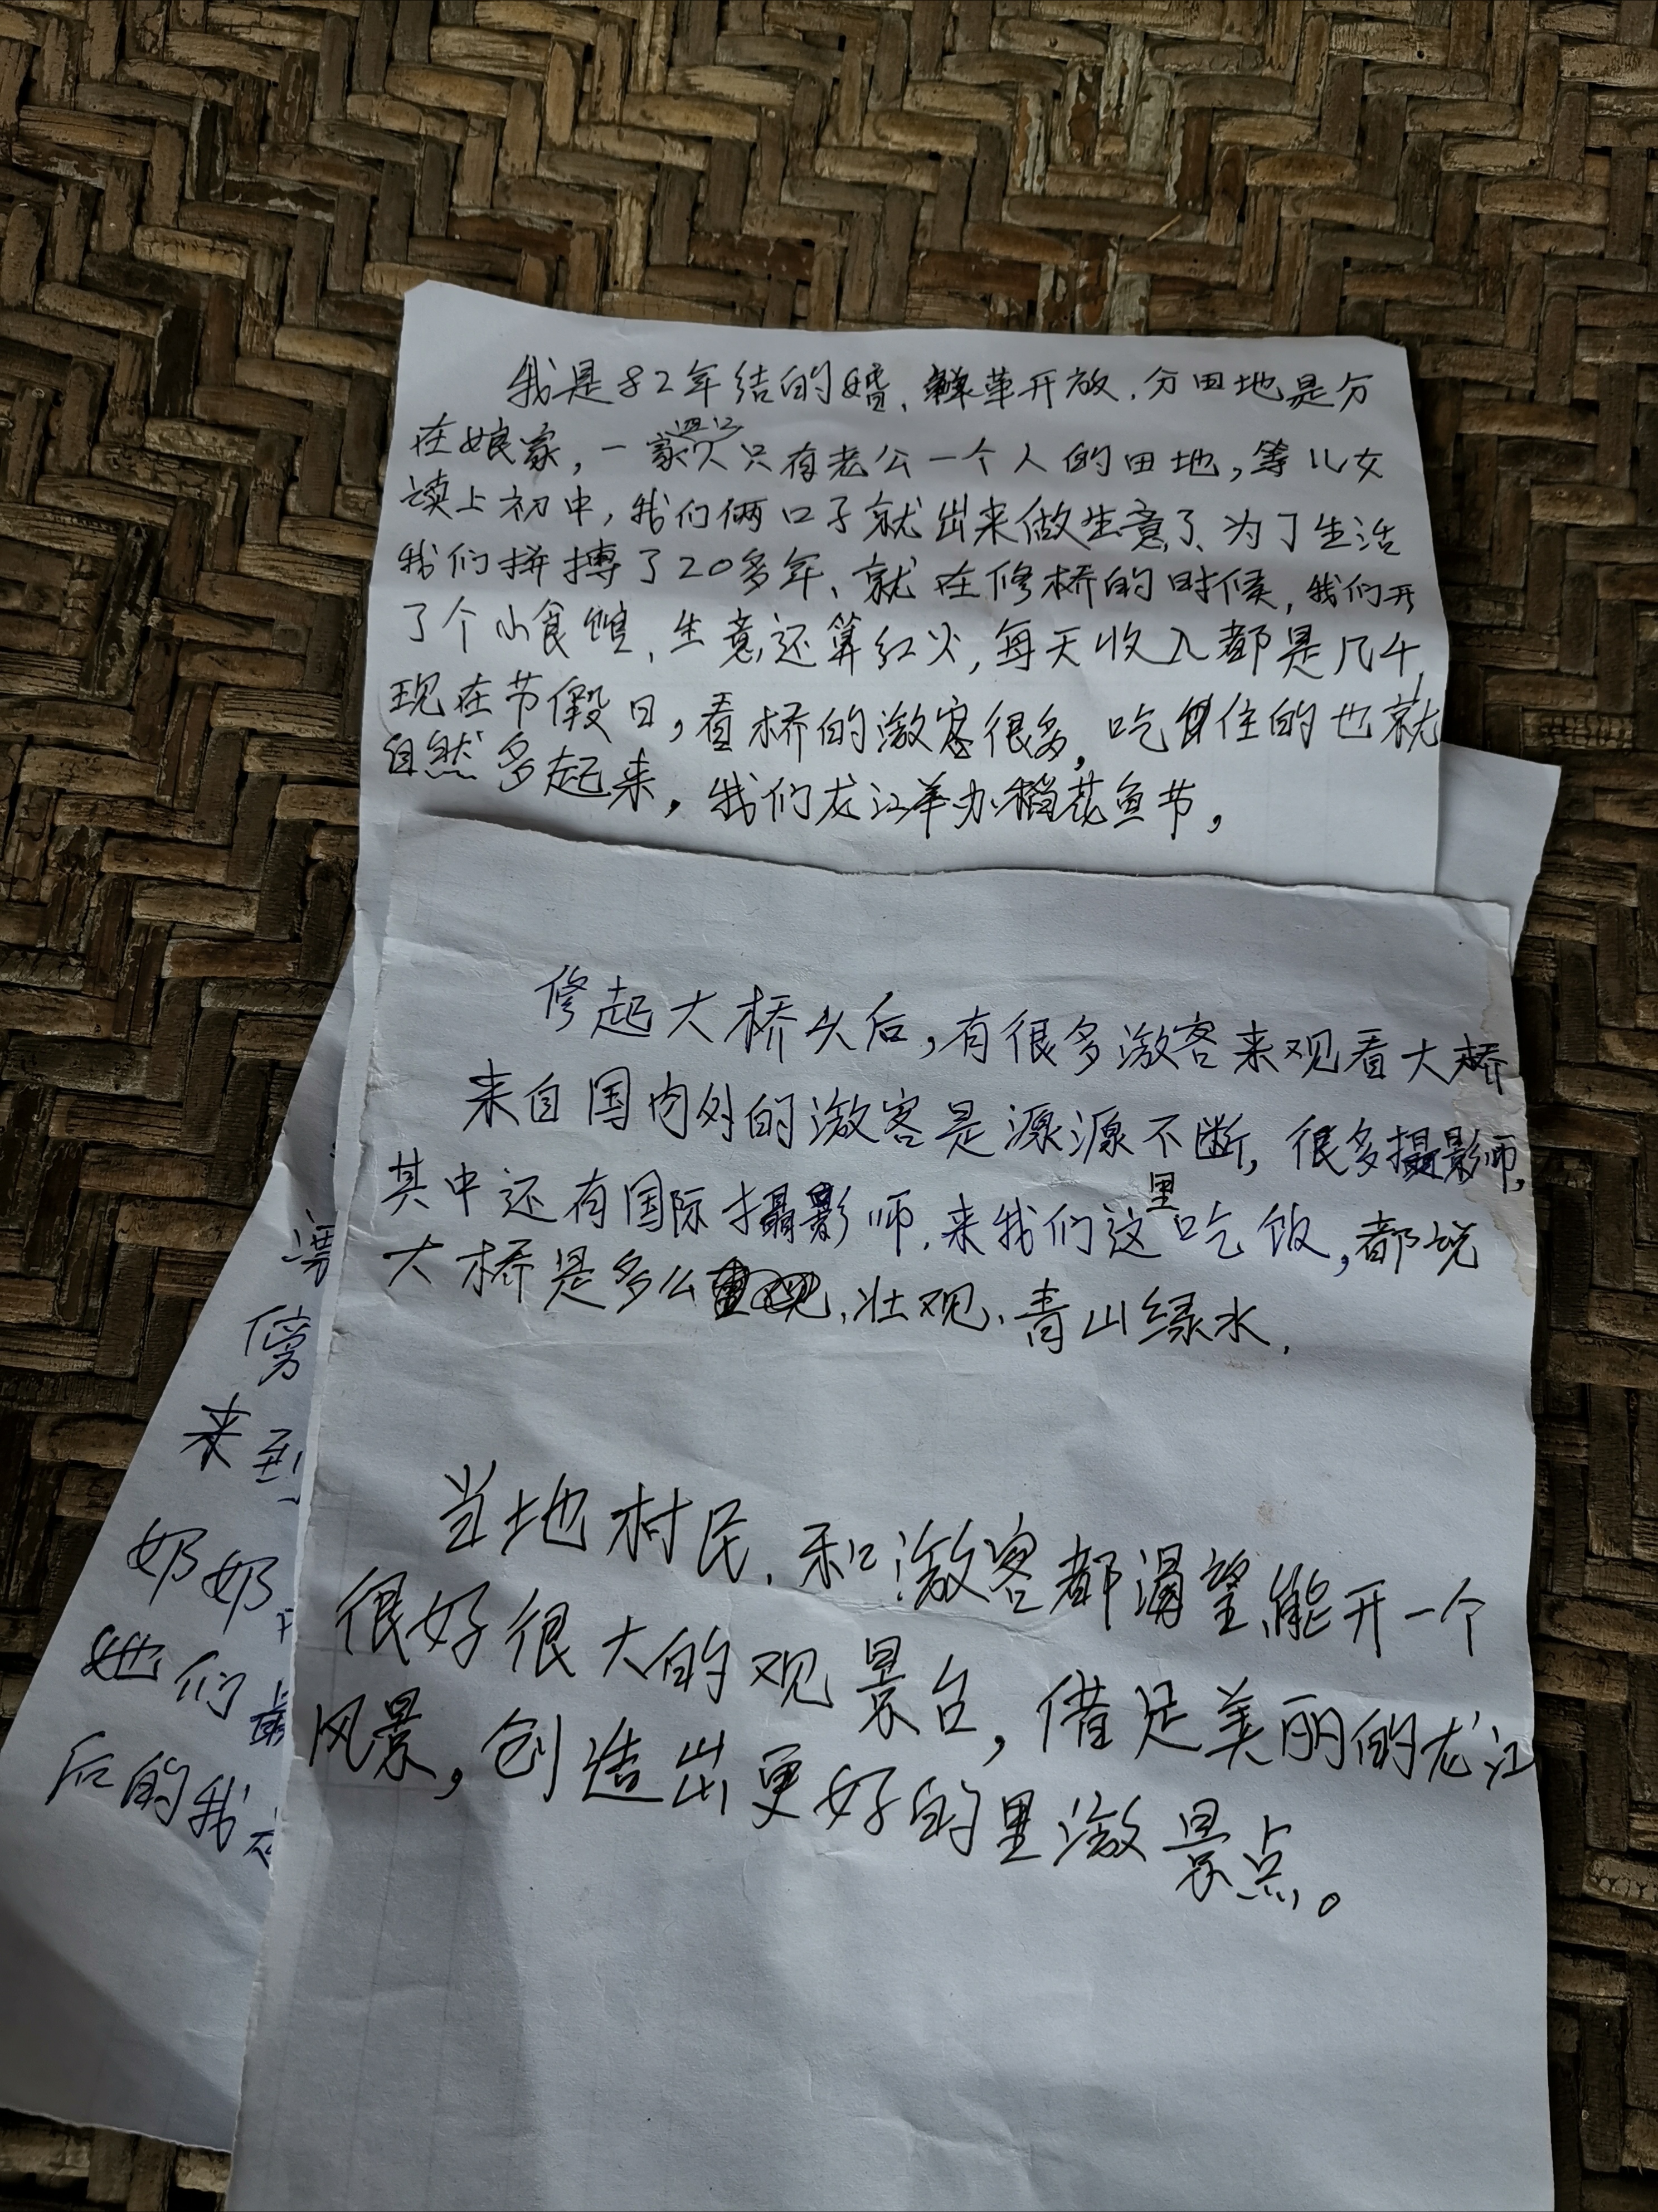 我是82年结的婚、革开放.分田地是分
在娘家，一家四口只有老公一个人的田地，等儿女
读上初中，我们俩口子就出来做生意了、为了生活
我们拼搏了20多年、就在修桥的时候，我们开
了个小食馆、生意还算红火，每天收入都是几千，
现在节假日，看桥的激客很多，吃住的也就
自然多起来，我们龙江举办稻花鱼节，
修起大桥头后，有很多激客来观看大桥
来自国内外的激客是源源不断，很多摄影师，
其中还有国际摄影师.来我们这里吃饭，都说
大桥是多么、壮观、青山绿水.
当地村民.和激客都渴望能开一个
很好很大的观景台，借足美丽的龙江
风景，创造出更好的里激景点。
傍
来到
奶奶
她们最
后的我